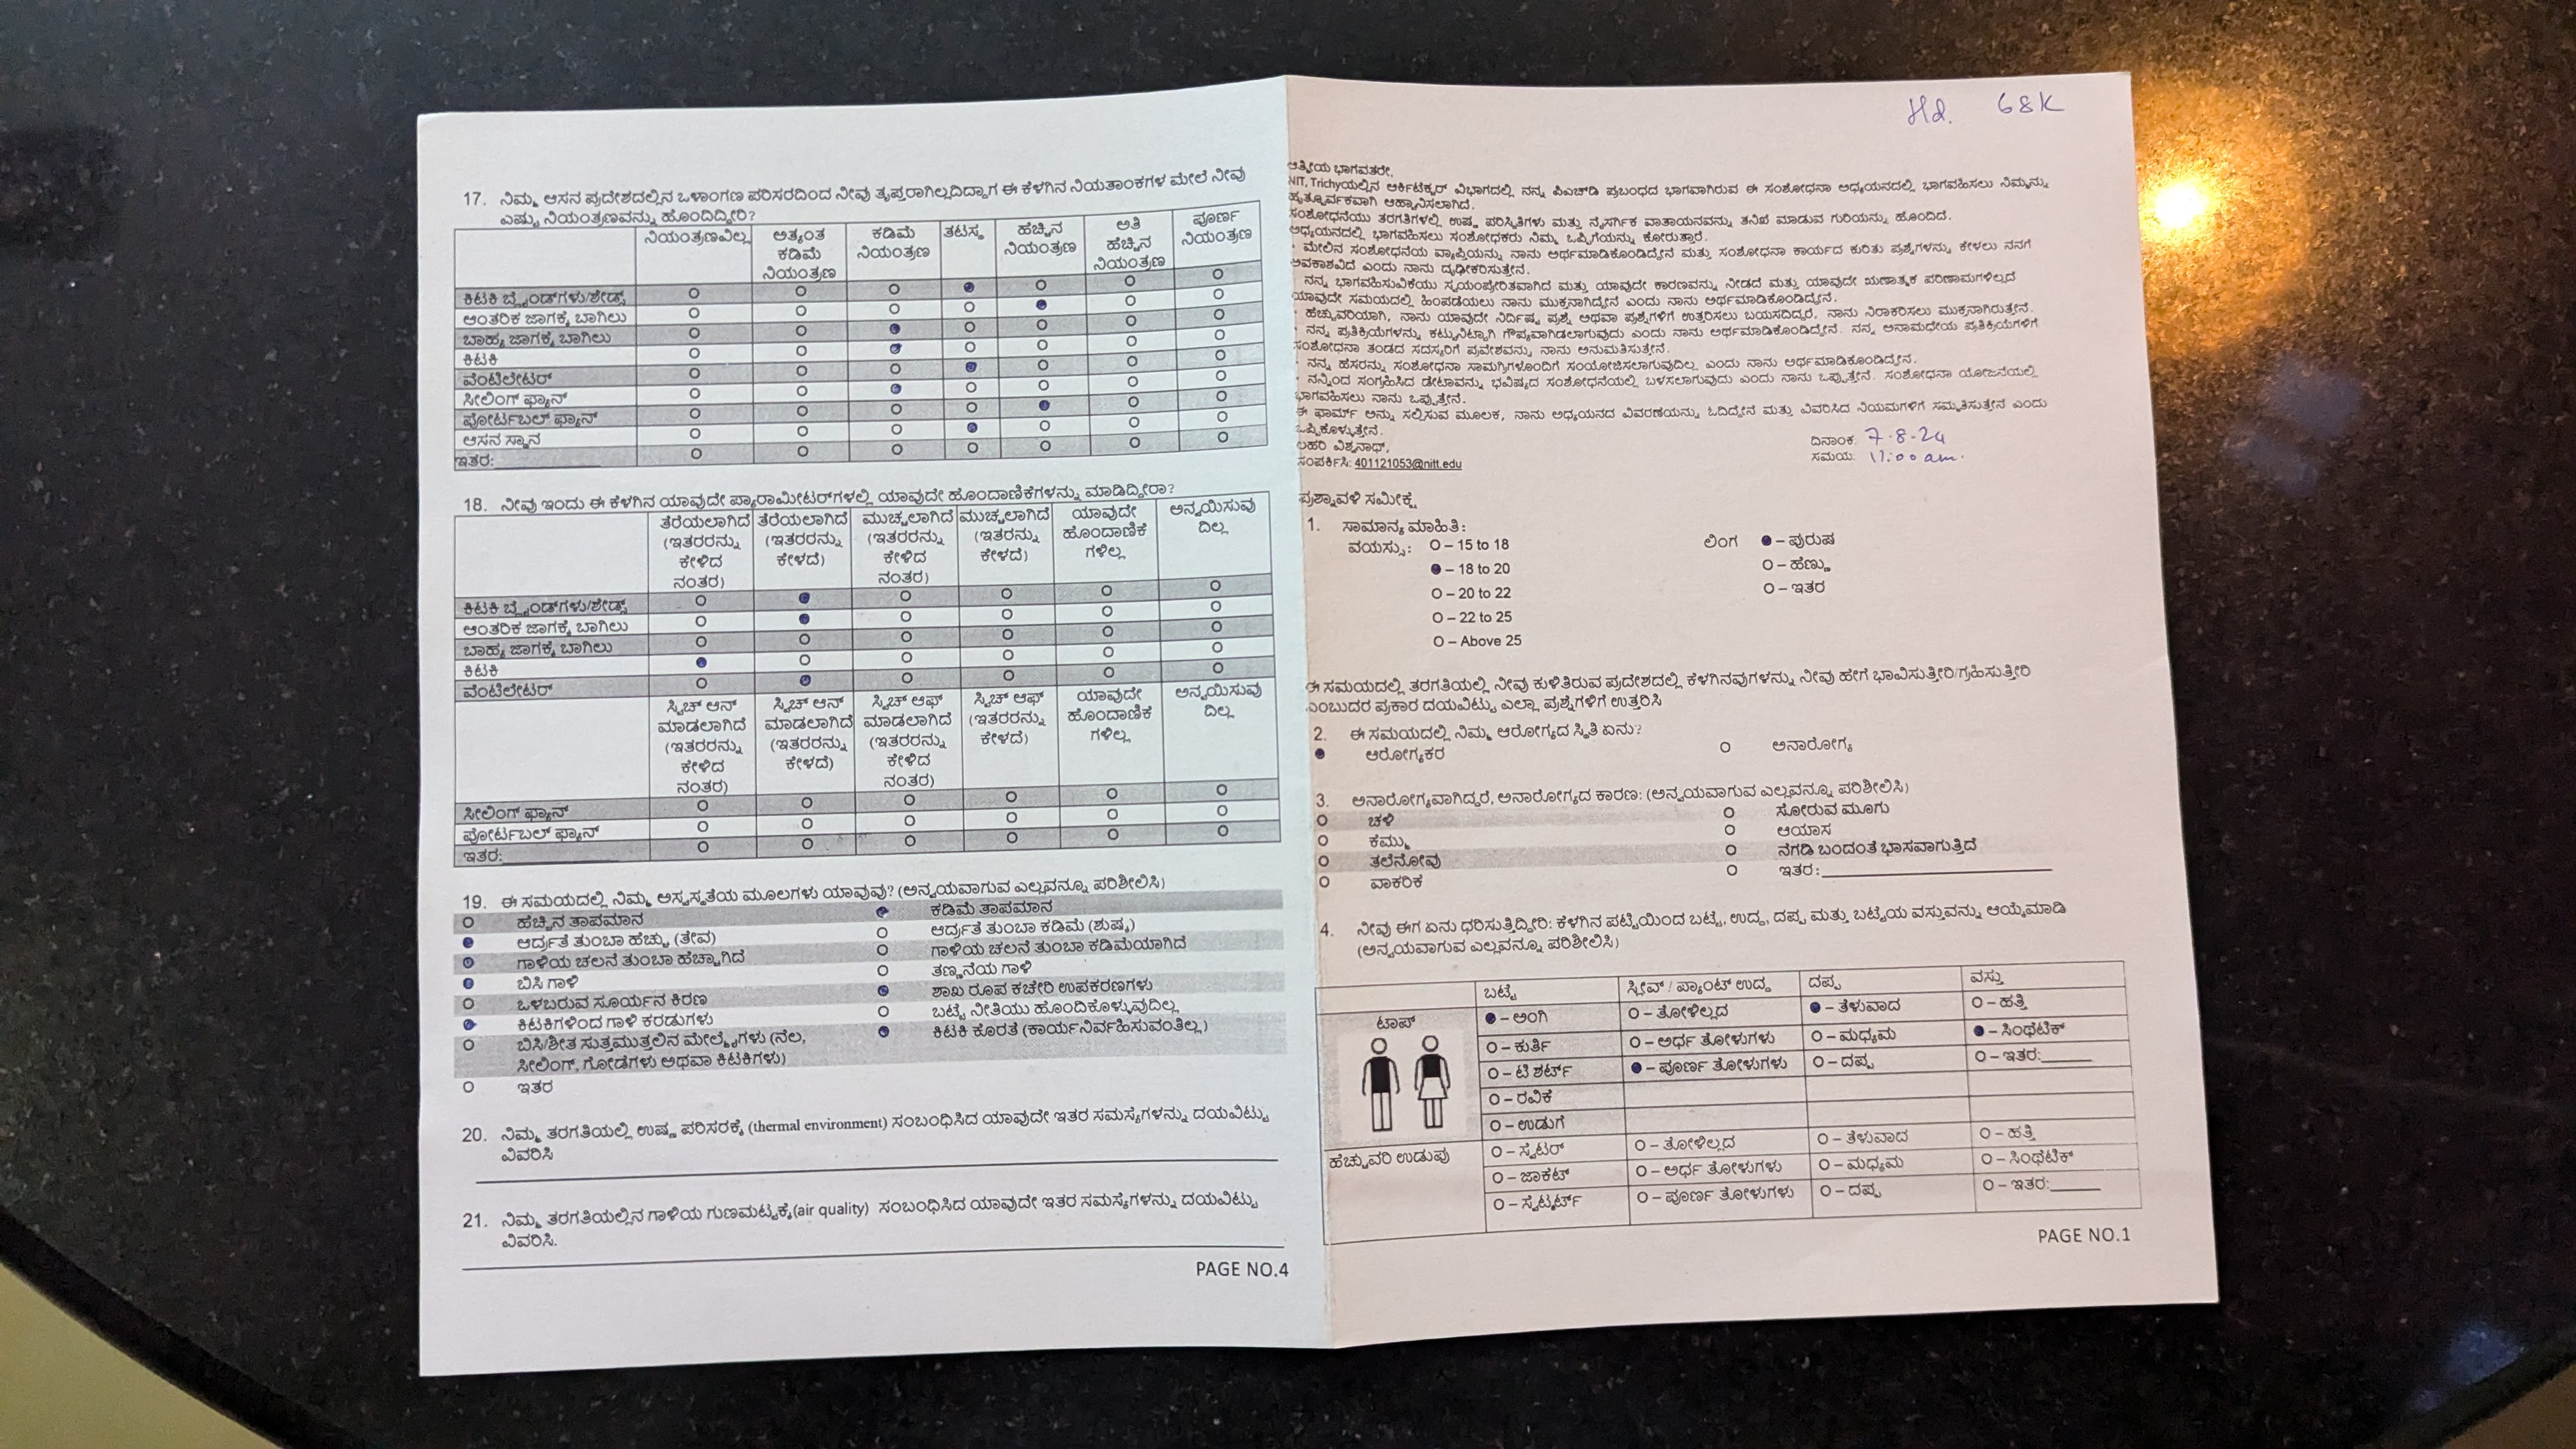 17. ನಿಮ್ಮ ಆಸನ ಪ್ರದೇಶದಲ್ಲಿನ ಒಳಾಂಗಣ ಪರಿಸರದಿಂದ ನೀವು ತೃಪ್ತರಾಗಿಲ್ಲದಿದ್ದಾಗ ಈ ಕೆಳಗಿನ ನಿಯತಾಂಕಗಳ ಮೇಲೆ ನೀವು
ಎಷ್ಟು ನಿಯಂತ್ರಣವನ್ನು ಹೊಂದಿದ್ದೀರಿ?
ನಿಯಂತ್ರಣವಿಲ್ಲ ಅತ್ಯಂತ ಕಡಿಮೆ ನಿಯಂತ್ರಣ ಕಡಿಮೆ ನಿಯಂತ್ರಣ ತಟಸ್ಥ ಹೆಚ್ಚಿನ ನಿಯಂತ್ರಣ ಅತಿ ಹೆಚ್ಚಿನ ನಿಯಂತ್ರಣ ಪೂರ್ಣ ನಿಯಂತ್ರಣ
ಕಿಟಕಿ ಬ್ಲೈಂಡ್‌ಗಳು/ಶೇಡ್ಸ್
ಆಂತರಿಕ ಜಾಗಕ್ಕೆ ಬಾಗಿಲು
ಬಾಹ್ಯ ಜಾಗಕ್ಕೆ ಬಾಗಿಲು
ಕಿಟಕಿ
ವೆಂಟಿಲೇಟರ್
ಸೀಲಿಂಗ್ ಫ್ಯಾನ್
ಪೋರ್ಟಬಲ್ ಫ್ಯಾನ್
ಆಸನ ಸ್ಥಾನ
ಇತರ:
18. ನೀವು ಇಂದು ಈ ಕೆಳಗಿನ ಯಾವುದೇ ಪ್ಯಾರಾಮೀಟರ್‌ಗಳಲ್ಲಿ ಯಾವುದೇ ಹೊಂದಾಣಿಕೆಗಳನ್ನು ಮಾಡಿದ್ದೀರಾ?
ತೆರೆಯಲಾಗಿದೆ (ಇತರರನ್ನು ಕೇಳಿದ ನಂತರ) ತೆರೆಯಲಾಗಿದೆ (ಇತರರನ್ನು ಕೇಳದೆ) ಮುಚ್ಚಲಾಗಿದೆ (ಇತರರನ್ನು ಕೇಳಿದ ನಂತರ) ಮುಚ್ಚಲಾಗಿದೆ (ಇತರರನ್ನು ಕೇಳದೆ) ಯಾವುದೇ ಹೊಂದಾಣಿಕೆ ಗಳಿಲ್ಲ ಅನ್ವಯಿಸುವು ದಿಲ್ಲ
ಕಿಟಕಿ ಬ್ಲೈಂಡ್‌ಗಳು/ಶೇಡ್ಸ್
ಆಂತರಿಕ ಜಾಗಕ್ಕೆ ಬಾಗಿಲು
ಬಾಹ್ಯ ಜಾಗಕ್ಕೆ ಬಾಗಿಲು
ಕಿಟಕಿ
ವೆಂಟಿಲೇಟರ್
ಸ್ವಿಚ್ ಆನ್ ಮಾಡಲಾಗಿದೆ (ಇತರರನ್ನು ಕೇಳಿದ ನಂತರ) ಸ್ವಿಚ್ ಆನ್ ಮಾಡಲಾಗಿದೆ (ಇತರರನ್ನು ಕೇಳದೆ) ಸ್ವಿಚ್ ಆಫ್ ಮಾಡಲಾಗಿದೆ (ಇತರರನ್ನು ಕೇಳಿದ ನಂತರ) ಸ್ವಿಚ್ ಆಫ್ (ಇತರರನ್ನು ಕೇಳದೆ) ಯಾವುದೇ ಹೊಂದಾಣಿಕೆ ಗಳಿಲ್ಲ ಅನ್ವಯಿಸುವು ದಿಲ್ಲ
ಸೀಲಿಂಗ್ ಫ್ಯಾನ್
ಪೋರ್ಟಬಲ್ ಫ್ಯಾನ್
ಇತರ:
19. ಈ ಸಮಯದಲ್ಲಿ ನಿಮ್ಮ ಅಸ್ವಸ್ಥತೆಯ ಮೂಲಗಳು ಯಾವುವು? (ಅನ್ವಯವಾಗುವ ಎಲ್ಲವನ್ನೂ ಪರಿಶೀಲಿಸಿ)
ಹೆಚ್ಚಿನ ತಾಪಮಾನ ಕಡಿಮೆ ತಾಪಮಾನ
ಆರ್ದ್ರತೆ ತುಂಬಾ ಹೆಚ್ಚು (ತೇವ) ಆರ್ದ್ರತೆ ತುಂಬಾ ಕಡಿಮೆ (ಶುಷ್ಕ)
ಗಾಳಿಯ ಚಲನೆ ತುಂಬಾ ಹೆಚ್ಚಾಗಿದೆ ಗಾಳಿಯ ಚಲನೆ ತುಂಬಾ ಕಡಿಮೆಯಾಗಿದೆ
ಬಿಸಿ ಗಾಳಿ ತಣ್ಣನೆಯ ಗಾಳಿ
ಒಳಬರುವ ಸೂರ್ಯನ ಕಿರಣ ಶಾಖ ರೂಪ ಕಚೇರಿ ಉಪಕರಣಗಳು
ಕಿಟಕಿಗಳಿಂದ ಗಾಳಿ ಕರಡುಗಳು ಬಟ್ಟೆ ನೀತಿಯು ಹೊಂದಿಕೊಳ್ಳುವುದಿಲ್ಲ
ಬಿಸಿ/ಶೀತ ಸುತ್ತಮುತ್ತಲಿನ ಮೇಲ್ಮೈಗಳು (ನೆಲ, ಕಿಟಕಿ ಕೊರತೆ (ಕಾರ್ಯನಿರ್ವಹಿಸುವಂತಿಲ್ಲ)
ಸೀಲಿಂಗ್, ಗೋಡೆಗಳು ಅಥವಾ ಕಿಟಕಿಗಳು)
ಇತರ
20. ನಿಮ್ಮ ತರಗತಿಯಲ್ಲಿ ಉಷ್ಣ ಪರಿಸರಕ್ಕೆ (thermal environment) ಸಂಬಂಧಿಸಿದ ಯಾವುದೇ ಇತರ ಸಮಸ್ಯೆಗಳನ್ನು ದಯವಿಟ್ಟು
ವಿವರಿಸಿ
21. ನಿಮ್ಮ ತರಗತಿಯಲ್ಲಿನ ಗಾಳಿಯ ಗುಣಮಟ್ಟಕ್ಕೆ(air quality) ಸಂಬಂಧಿಸಿದ ಯಾವುದೇ ಇತರ ಸಮಸ್ಯೆಗಳನ್ನು ದಯವಿಟ್ಟು
ವಿವರಿಸಿ.
PAGE NO.4
Hd. 68K
ಆತ್ಮೀಯ ಭಾಗವತರೇ,
NIT, Trichyಯಲ್ಲಿನ ಆರ್ಕಿಟೆಕ್ಚರ್ ವಿಭಾಗದಲ್ಲಿ ನನ್ನ ಪಿಎಚ್‌ಡಿ ಪ್ರಬಂಧದ ಭಾಗವಾಗಿರುವ ಈ ಸಂಶೋಧನಾ ಅಧ್ಯಯನದಲ್ಲಿ ಭಾಗವಹಿಸಲು ನಿಮ್ಮನ್ನು
ಹೃತ್ಪೂರ್ವಕವಾಗಿ ಆಹ್ವಾನಿಸಲಾಗಿದೆ.
ಸಂಶೋಧನೆಯು ತರಗತಿಗಳಲ್ಲಿ ಉಷ್ಣ ಪರಿಸ್ಥಿತಿಗಳು ಮತ್ತು ನೈಸರ್ಗಿಕ ವಾತಾಯನವನ್ನು ತನಿಖೆ ಮಾಡುವ ಗುರಿಯನ್ನು ಹೊಂದಿದೆ.
ಅಧ್ಯಯನದಲ್ಲಿ ಭಾಗವಹಿಸಲು ಸಂಶೋಧಕರು ನಿಮ್ಮ ಒಪ್ಪಿಗೆಯನ್ನು ಕೋರುತ್ತಾರೆ.
· ಮೇಲಿನ ಸಂಶೋಧನೆಯ ವ್ಯಾಪ್ತಿಯನ್ನು ನಾನು ಅರ್ಥಮಾಡಿಕೊಂಡಿದ್ದೇನೆ ಮತ್ತು ಸಂಶೋಧನಾ ಕಾರ್ಯದ ಕುರಿತು ಪ್ರಶ್ನೆಗಳನ್ನು ಕೇಳಲು ನನಗೆ
ಅವಕಾಶವಿದೆ ಎಂದು ನಾನು ದೃಢೀಕರಿಸುತ್ತೇನೆ.
· ನನ್ನ ಭಾಗವಹಿಸುವಿಕೆಯು ಸ್ವಯಂಪ್ರೇರಿತವಾಗಿದೆ ಮತ್ತು ಯಾವುದೇ ಕಾರಣವನ್ನು ನೀಡದೆ ಮತ್ತು ಯಾವುದೇ ಋಣಾತ್ಮಕ ಪರಿಣಾಮಗಳಿಲ್ಲದೆ
ಯಾವುದೇ ಸಮಯದಲ್ಲಿ ಹಿಂಪಡೆಯಲು ನಾನು ಮುಕ್ತನಾಗಿದ್ದೇನೆ ಎಂದು ನಾನು ಅರ್ಥಮಾಡಿಕೊಂಡಿದ್ದೇನೆ.
· ಹೆಚ್ಚುವರಿಯಾಗಿ, ನಾನು ಯಾವುದೇ ನಿರ್ದಿಷ್ಟ ಪ್ರಶ್ನೆ ಅಥವಾ ಪ್ರಶ್ನೆಗಳಿಗೆ ಉತ್ತರಿಸಲು ಬಯಸದಿದ್ದರೆ, ನಾನು ನಿರಾಕರಿಸಲು ಮುಕ್ತನಾಗಿರುತ್ತೇನೆ.
· ನನ್ನ ಪ್ರತಿಕ್ರಿಯೆಗಳನ್ನು ಕಟ್ಟುನಿಟ್ಟಾಗಿ ಗೌಪ್ಯವಾಗಿಡಲಾಗುವುದು ಎಂದು ನಾನು ಅರ್ಥಮಾಡಿಕೊಂಡಿದ್ದೇನೆ. ನನ್ನ ಅನಾಮಧೇಯ ಪ್ರತಿಕ್ರಿಯೆಗಳಿಗೆ
ಸಂಶೋಧನಾ ತಂಡದ ಸದಸ್ಯರಿಗೆ ಪ್ರವೇಶವನ್ನು ನಾನು ಅನುಮತಿಸುತ್ತೇನೆ.
· ನನ್ನ ಹೆಸರನ್ನು ಸಂಶೋಧನಾ ಸಾಮಗ್ರಿಗಳೊಂದಿಗೆ ಸಂಯೋಜಿಸಲಾಗುವುದಿಲ್ಲ ಎಂದು ನಾನು ಅರ್ಥಮಾಡಿಕೊಂಡಿದ್ದೇನೆ.
· ನನ್ನಿಂದ ಸಂಗ್ರಹಿಸಿದ ಡೇಟಾವನ್ನು ಭವಿಷ್ಯದ ಸಂಶೋಧನೆಯಲ್ಲಿ ಬಳಸಲಾಗುವುದು ಎಂದು ನಾನು ಒಪ್ಪುತ್ತೇನೆ. ಸಂಶೋಧನಾ ಯೋಜನೆಯಲ್ಲಿ
ಭಾಗವಹಿಸಲು ನಾನು ಒಪ್ಪುತ್ತೇನೆ.
ಈ ಫಾರ್ಮ್ ಅನ್ನು ಸಲ್ಲಿಸುವ ಮೂಲಕ, ನಾನು ಅಧ್ಯಯನದ ವಿವರಣೆಯನ್ನು ಓದಿದ್ದೇನೆ ಮತ್ತು ವಿವರಿಸಿದ ನಿಯಮಗಳಿಗೆ ಸಮ್ಮತಿಸುತ್ತೇನೆ ಎಂದು
ಒಪ್ಪಿಕೊಳ್ಳುತ್ತೇನೆ.
ಲಹರಿ ವಿಶ್ವನಾಥ್,
ಸಂಪರ್ಕಿಸಿ: 401121053@nitt.edu
ದಿನಾಂಕ: 7-8-24
ಸಮಯ: 11:00 am.
ಪ್ರಶ್ನಾವಳಿ ಸಮೀಕ್ಷೆ
1. ಸಾಮಾನ್ಯ ಮಾಹಿತಿ:
ವಯಸ್ಸು: – 15 to 18 ಲಿಂಗ – ಪುರುಷ
– 18 to 20 – ಹೆಣ್ಣು
– 20 to 22 – ಇತರ
– 22 to 25
– Above 25
ಈ ಸಮಯದಲ್ಲಿ ತರಗತಿಯಲ್ಲಿ ನೀವು ಕುಳಿತಿರುವ ಪ್ರದೇಶದಲ್ಲಿ ಕೆಳಗಿನವುಗಳನ್ನು ನೀವು ಹೇಗೆ ಭಾವಿಸುತ್ತೀರಿ/ಗ್ರಹಿಸುತ್ತೀರಿ
ಎಂಬುದರ ಪ್ರಕಾರ ದಯವಿಟ್ಟು ಎಲ್ಲಾ ಪ್ರಶ್ನೆಗಳಿಗೆ ಉತ್ತರಿಸಿ
2. ಈ ಸಮಯದಲ್ಲಿ ನಿಮ್ಮ ಆರೋಗ್ಯದ ಸ್ಥಿತಿ ಏನು?
ಆರೋಗ್ಯಕರ ಅನಾರೋಗ್ಯ
3. ಅನಾರೋಗ್ಯವಾಗಿದ್ದರೆ, ಅನಾರೋಗ್ಯದ ಕಾರಣ: (ಅನ್ವಯವಾಗುವ ಎಲ್ಲವನ್ನೂ ಪರಿಶೀಲಿಸಿ)
ಚಳಿ ಸೋರುವ ಮೂಗು
ಕೆಮ್ಮು ಆಯಾಸ
ತಲೆನೋವು ನೆಗಡಿ ಬಂದಂತೆ ಭಾಸವಾಗುತ್ತಿದೆ
ವಾಕರಿಕೆ ಇತರ:
4. ನೀವು ಈಗ ಏನು ಧರಿಸುತ್ತಿದ್ದೀರಿ: ಕೆಳಗಿನ ಪಟ್ಟಿಯಿಂದ ಬಟ್ಟೆ, ಉದ್ದ, ದಪ್ಪ ಮತ್ತು ಬಟ್ಟೆಯ ವಸ್ತುವನ್ನು ಆಯ್ಕೆಮಾಡಿ
(ಅನ್ವಯವಾಗುವ ಎಲ್ಲವನ್ನೂ ಪರಿಶೀಲಿಸಿ)
ಬಟ್ಟೆ ಸ್ಲೀವ್ / ಪ್ಯಾಂಟ್ ಉದ್ದ ದಪ್ಪ ವಸ್ತು
ಟಾಪ್ – ಅಂಗಿ – ತೋಳಿಲ್ಲದ – ತೆಳುವಾದ – ಹತ್ತಿ
– ಕುರ್ತಿ – ಅರ್ಧ ತೋಳುಗಳು – ಮಧ್ಯಮ – ಸಿಂಥೆಟಿಕ್
– ಟಿ ಶರ್ಟ್ – ಪೂರ್ಣ ತೋಳುಗಳು – ದಪ್ಪ – ಇತರ:
– ರವಿಕೆ
– ಉಡುಗೆ
ಹೆಚ್ಚುವರಿ ಉಡುಪು – ಸ್ವೆಟರ್ – ತೋಳಿಲ್ಲದ – ತೆಳುವಾದ – ಹತ್ತಿ
– ಜಾಕೆಟ್ – ಅರ್ಧ ತೋಳುಗಳು – ಮಧ್ಯಮ – ಸಿಂಥೆಟಿಕ್
– ಸ್ವೆಟ್ಶರ್ಟ್ – ಪೂರ್ಣ ತೋಳುಗಳು – ದಪ್ಪ – ಇತರ:
PAGE NO.1